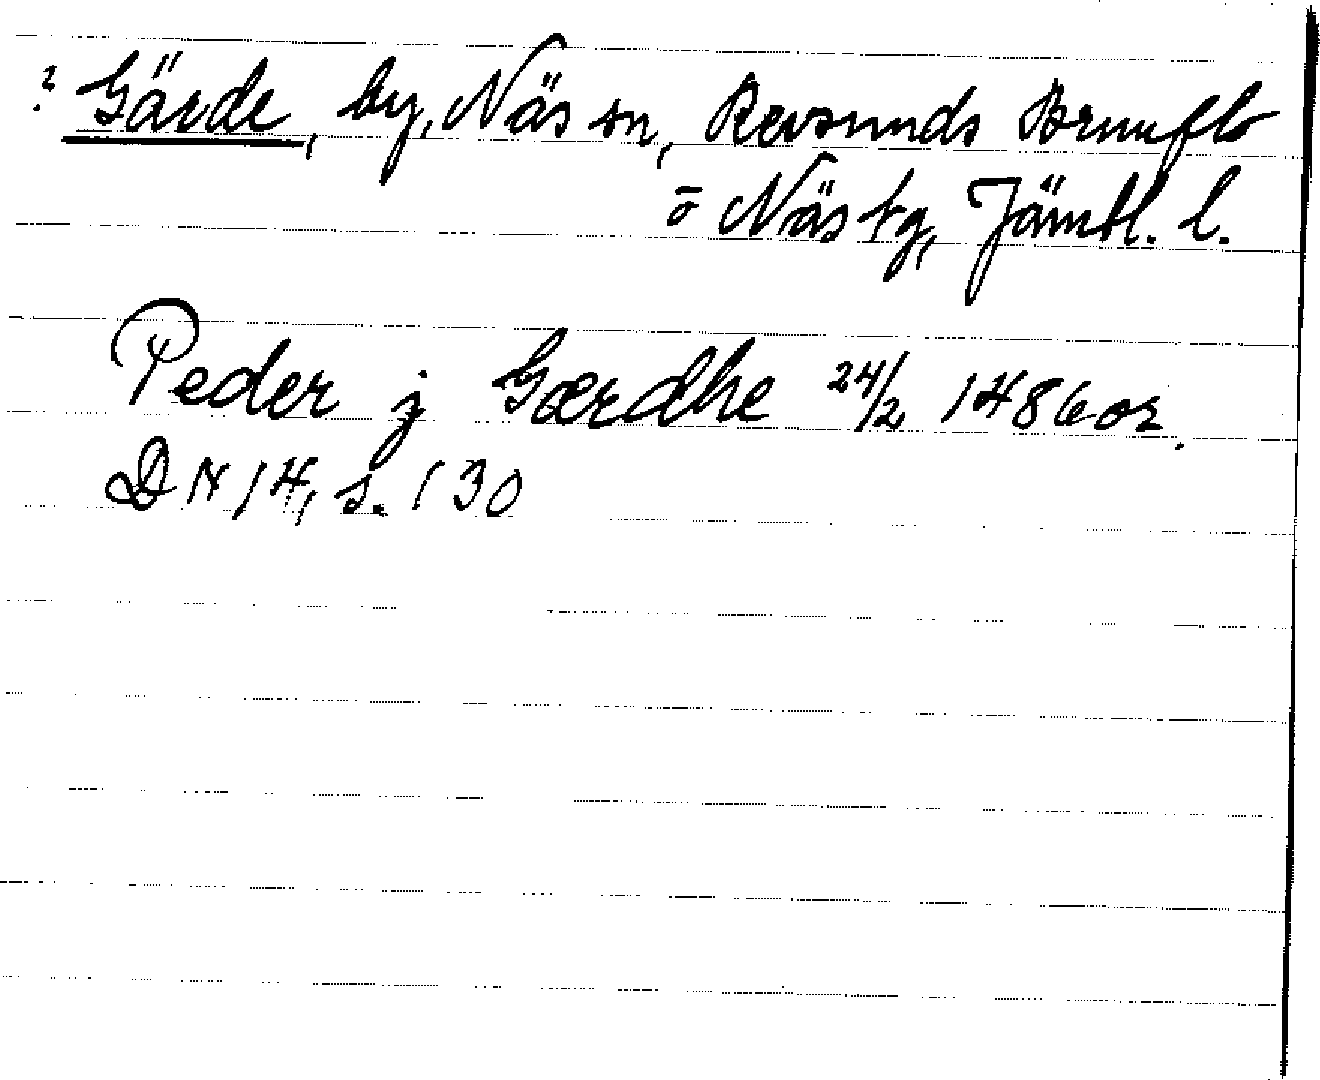 ? Gärde, by, Näs sn, Revsunds Brunflo
o Näs tg, Jämtl. l.
Peder j Gærdhe 24/2 1486 or.
DN 14, s. 130